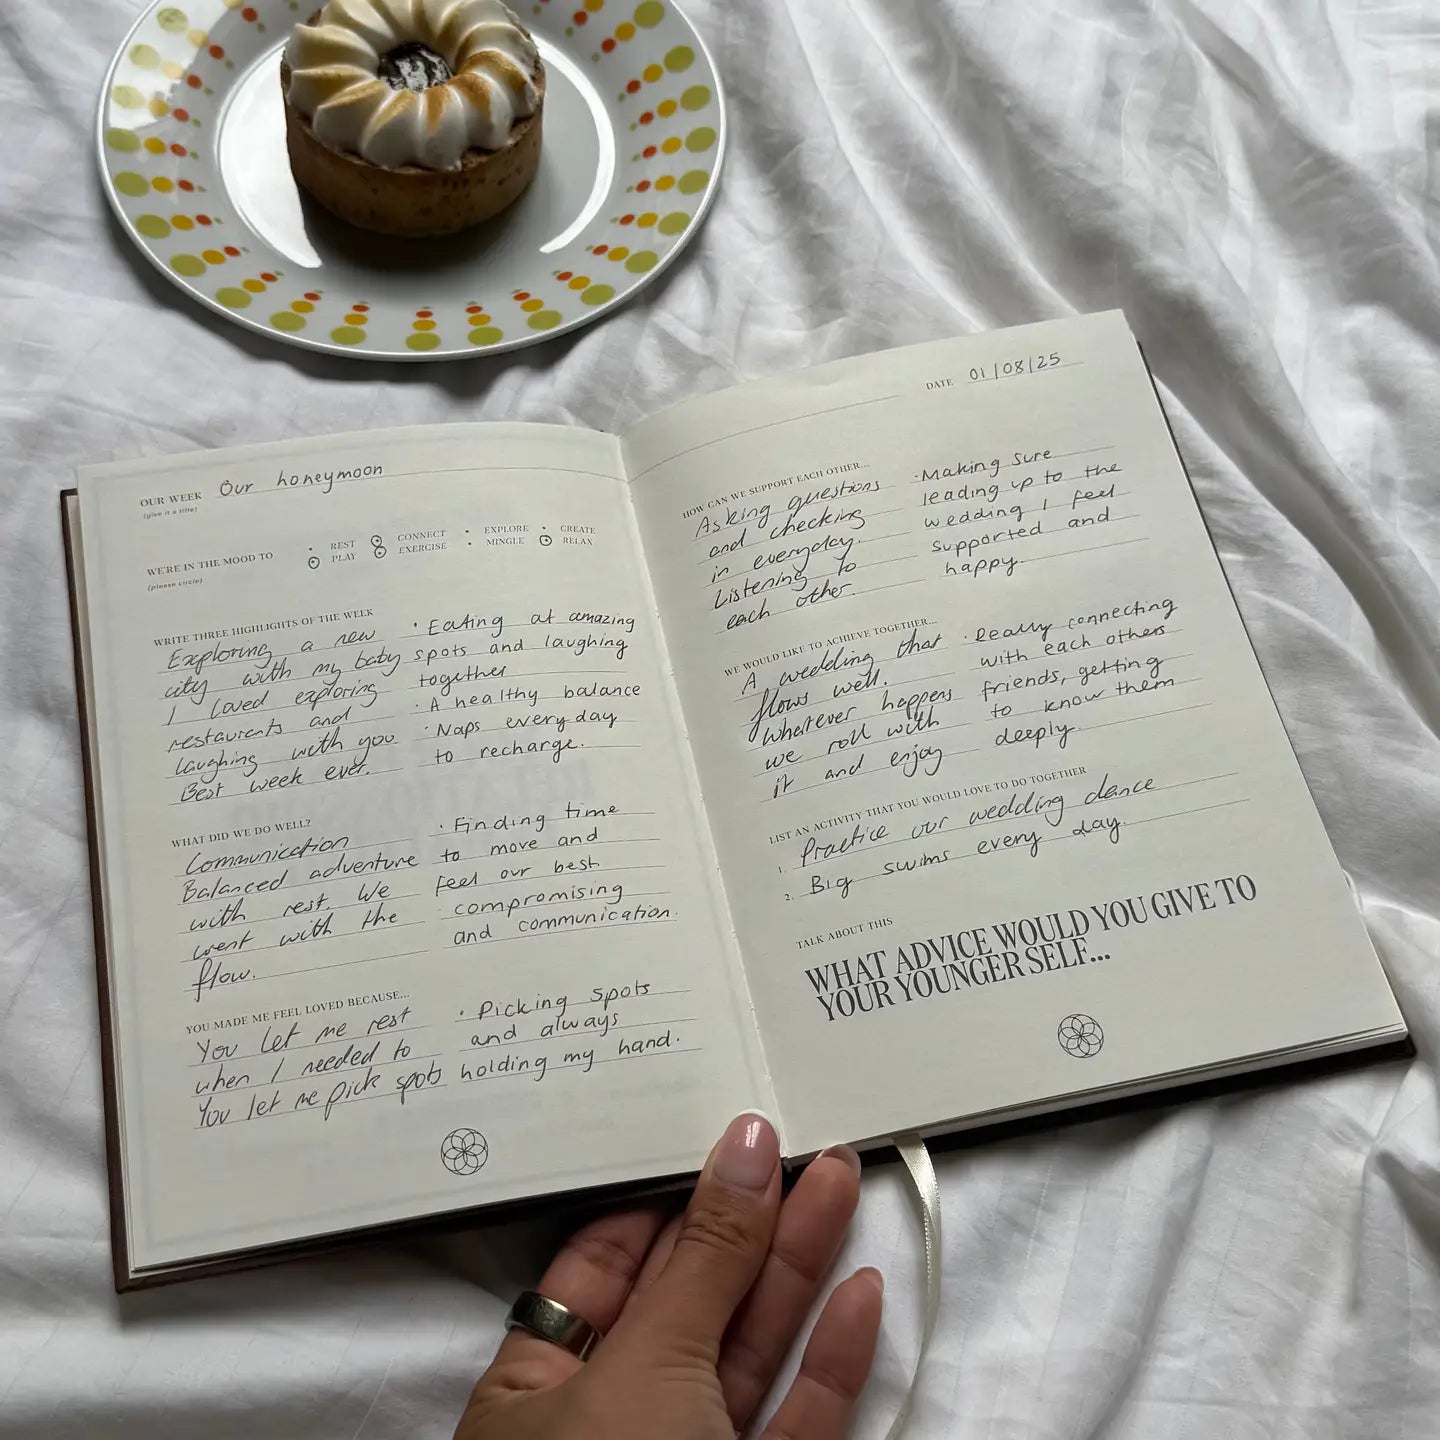 OUR WEEK Our honeymoon
(give it a title)
WE'RE IN THE MOOD TO
(please circle)
REST
PLAY
CONNECT
EXERCISE
EXPLORE
MINGLE
CREATE
RELAX
WRITE THREE HIGHLIGHTS OF THE WEEK
Exploring a new
city with my baby
I loved exploring
restaurants and
laughing with you
Best week ever.
· Eating at amazing
spots and laughing
together
· A healthy balance
· Naps every day
to recharge.
WHAT DID WE DO WELL?
Communication
Balanced adventure
with rest. We
went with the
flow.
· Finding time
to move and
feel our best.
· compromising
and communication.
YOU MADE ME FEEL LOVED BECAUSE...
You let me rest
when I needed to
You let me pick spots
· Picking spots
and always
holding my hand.
DATE 01/08/25
HOW CAN WE SUPPORT EACH OTHER...
Asking questions
and checking
in everyday.
Listening to
each other.
· Making sure
leading up to the
wedding I feel
supported and
happy.
WE WOULD LIKE TO ACHIEVE TOGETHER...
A wedding that
flows well.
Whatever happens
we roll with
it and enjoy
· Really connecting
with each others
friends, getting
to know them
deeply.
LIST AN ACTIVITY THAT YOU WOULD LOVE TO DO TOGETHER
1. Practice our wedding dance
2. Big swims every day.
TALK ABOUT THIS
WHAT ADVICE WOULD YOU GIVE TO
YOUR YOUNGER SELF...